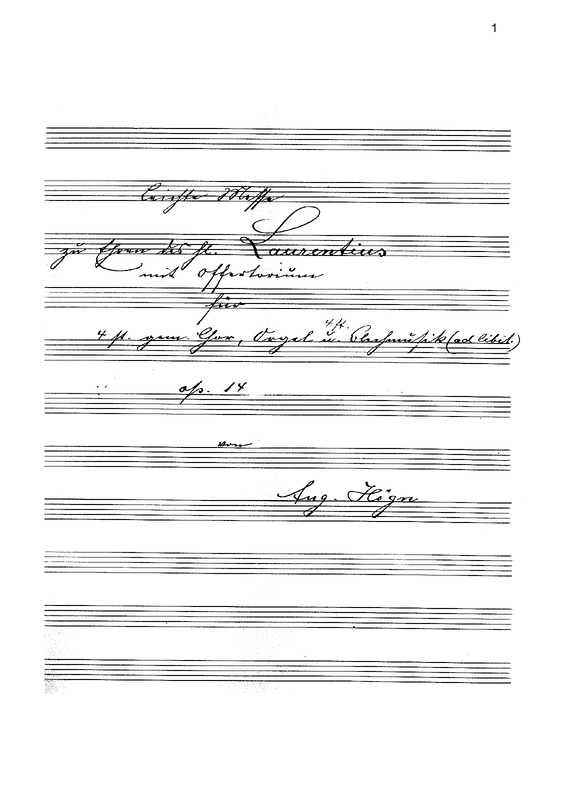 1
Leichte Messe
zu Ehren des hl. Laurentius
mit Offertorium
für
4 st. gem. Chor, Orgel u. 4 st. Blechmusik (ad libit.)
op. 14
von
Aug. Högn